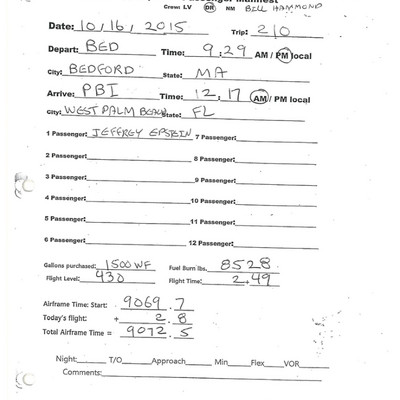 Passenger Manifest
Crew: LV DR NM BILL HAMMOND
Date: 10/16/2015 Trip: 210
Depart: BED Time: 9:29 AM / PM local
City: BEDFORD State: MA
Arrive: PBI Time: 12:17 AM / PM local
City: WEST PALM BEACH State: FL
1 Passenger: JEFFREY EPSTEIN 7 Passenger:
2 Passenger: 8 Passenger:
3 Passenger: 9 Passenger:
4 Passenger: 10 Passenger:
5 Passenger: 11 Passenger:
6 Passenger: 12 Passenger:
Gallons purchased: 1500 WF Fuel Burn lbs. 8528
Flight Level: 430 Flight Time: 2+49
Airframe Time: Start: 9069.7
Today's flight: + 2.8
Total Airframe Time = 9072.5
Night: T/O Approach Min Flex VOR
Comments: